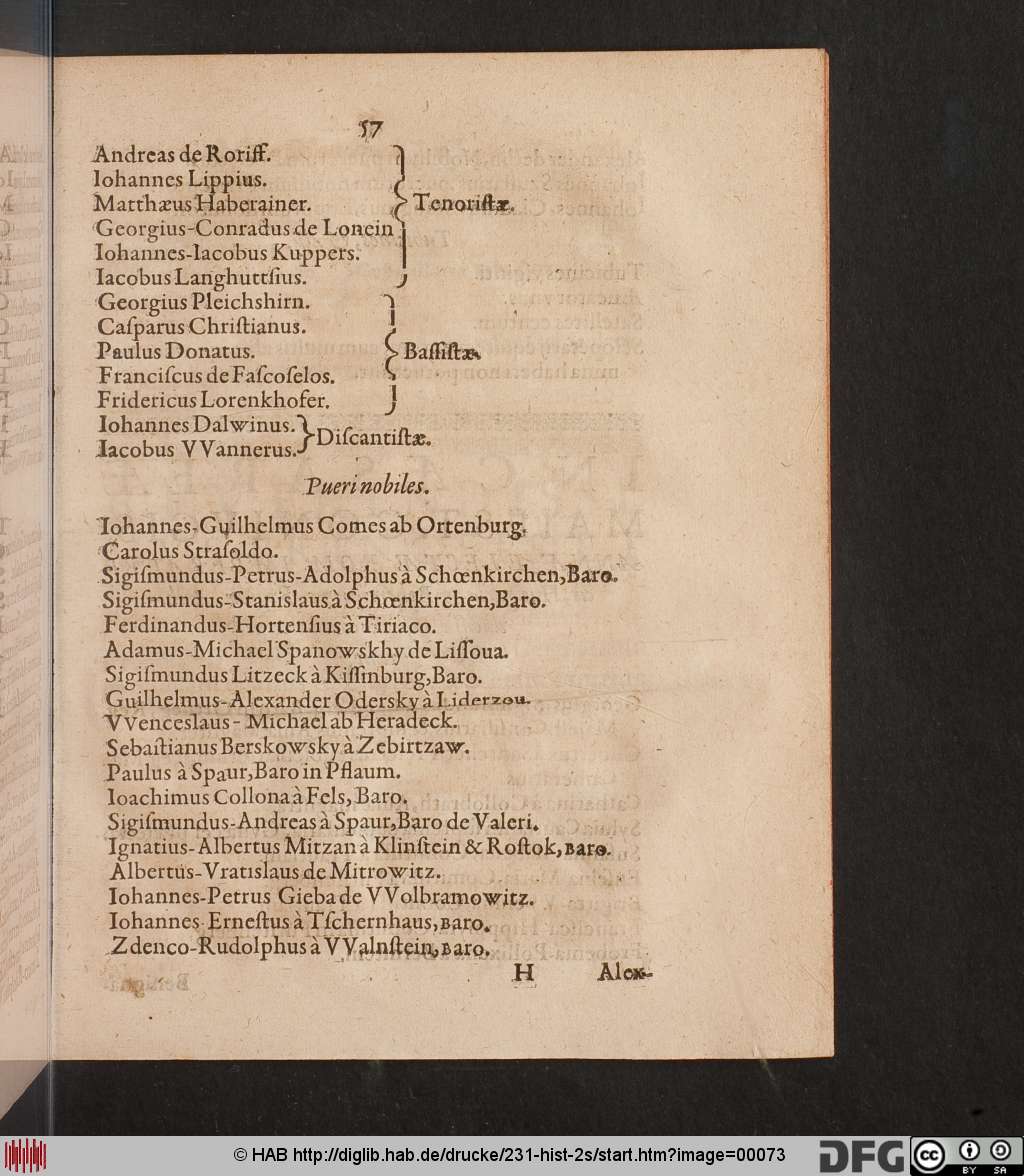 57
Andreas de Roriff.
Iohannes Lippius.
Matthæus Haberainer.
Tenoriſtæ.
Georgius-Conradus de Lonein
Iohannes-Iacobus Kuppers.
Iacobus Langhuttſius.
Georgius Pleichshirn.
Caſparus Chriſtianus.
Paulus Donatus.
Baſſiſtæ.
Franciſcus de Faſcoſelos.
Fridericus Lorenkhofer.
Iohannes Dalwinus.
Diſcantiſtæ.
Iacobus VVannerus.
Pueri nobiles.
Iohannes-Guilhelmus Comes ab Ortenburg.
Carolus Straſoldo.
Sigiſmundus-Petrus-Adolphus à Schœnkirchen, Baro.
Sigiſmundus-Stanislaus à Schœnkirchen, Baro.
Ferdinandus-Hortenſius à Tiriaco.
Adamus-Michael Spanowskhy de Liſſoua.
Sigiſmundus Litzeck à Kiſſinburg, Baro.
Guilhelmus-Alexander Odersky à Liderzou.
VVenceslaus-Michael ab Heradeck.
Sebaſtianus Berskowsky à Zebirtzaw.
Paulus à Spaur, Baro in Pflaum.
Ioachimus Collona à Fels, Baro.
Sigiſmundus-Andreas à Spaur, Baro de Valeri.
Ignatius-Albertus Mitzan à Klinſtein & Roſtok, Baro.
Albertus-Vratislaus de Mitrowitz.
Iohannes-Petrus Gieba de VVolbramowitz.
Iohannes-Erneſtus à Tſchernhaus, Baro.
Zdenco-Rudolphus à VValnſtein, Baro.
H Alex-
© HAB http://diglib.hab.de/drucke/231-hist-2s/start.htm?image=00073
DFG
cc BY SA